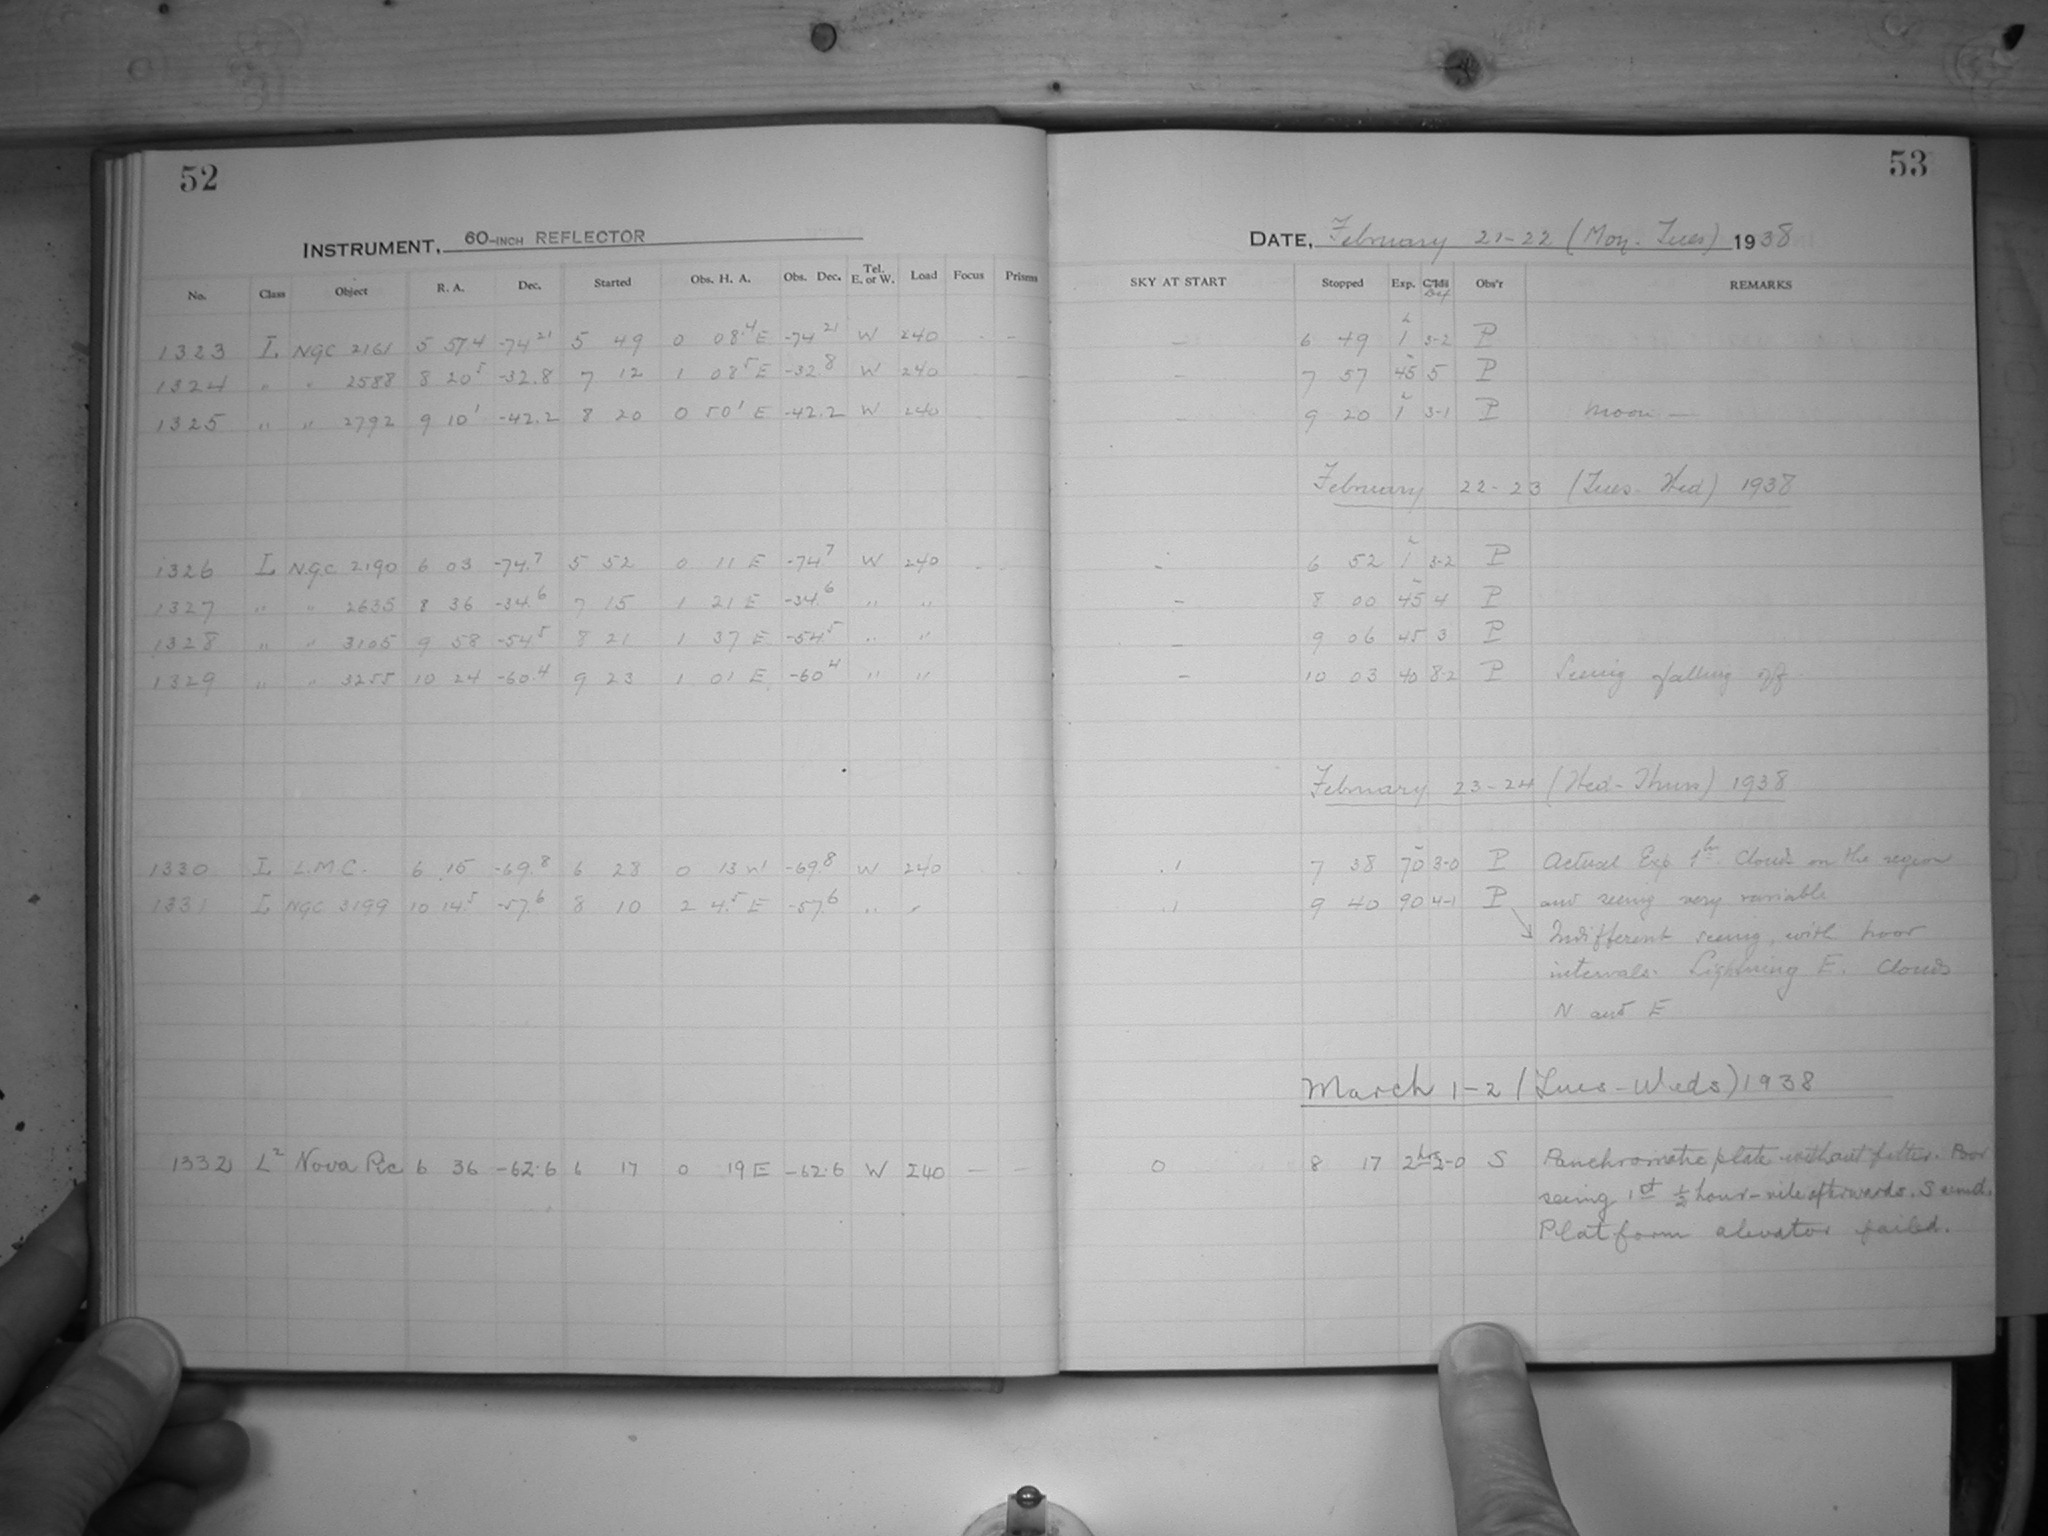 52
INSTRUMENT, 60-INCH REFLECTOR
No. Class Object R. A. Dec. Started Obs. H. A. Obs. Dec. Tel. E. or W. Load Focus Prisms
1323 L NGC 2161 5 57.4 -74 21 5 49 0 08.4 E -74 21 W 240 - -
1324 " " 2588 8 20.5 -32.8 7 12 1 08.5 E -32.8 W 240 - -
1325 " " 2792 9 10.1 -42.2 8 20 0 50.1 E -42.2 W 240 -
1326 L N.G.C 2190 6 03 -74.7 5 52 0 11 E -74.7 W 240 - -
1327 " " 2635 8 36 -34.6 7 15 1 21 E -34.6 " "
1328 " " 3105 9 58 -54.5 8 21 1 37 E -54.5 " "
1329 " " 3255 10 24 -60.4 9 23 1 01 E -60.4 " "
1330 L L.M.C. 6 15 -69.8 6 28 0 13 W -69.8 W 240
1331 L NGC 3199 10 14.5 -57.6 8 10 2 4.5 E -57.6 " "
1332 L2 Nova Pic 6 36 -62.6 6 17 0 19 E -62.6 W 240 - -
53
DATE, February 21-22 (Mon. Tues) 1938
SKY AT START Stopped Exp. Obs'r REMARKS
- 6 49 1 3-2 P
- 7 57 45 5 P
- 9 20 1 3-1 P Moon -
February 22-23 (Tues-Wed) 1938
- 6 52 1 3-2 P
- 8 00 45 4 P
- 9 06 45 3 P
- 10 03 40 8-2 P Seeing falling off.
February 23-24 (Wed-Thurs) 1938
7 38 70 3-0 P Actual Exp 1hr Clouds on the region
9 40 90 4-1 P and seeing very variable
Indifferent seeing, with poor
intervals. Lightning E. Clouds
N and E
March 1-2 (Tues-Weds) 1938
0 8 17 2hrs 2-0 S Panchromatic plate without filter. Poor
seeing 1st ½ hour - nile afterwards. S wind.
Platform elevator failed.